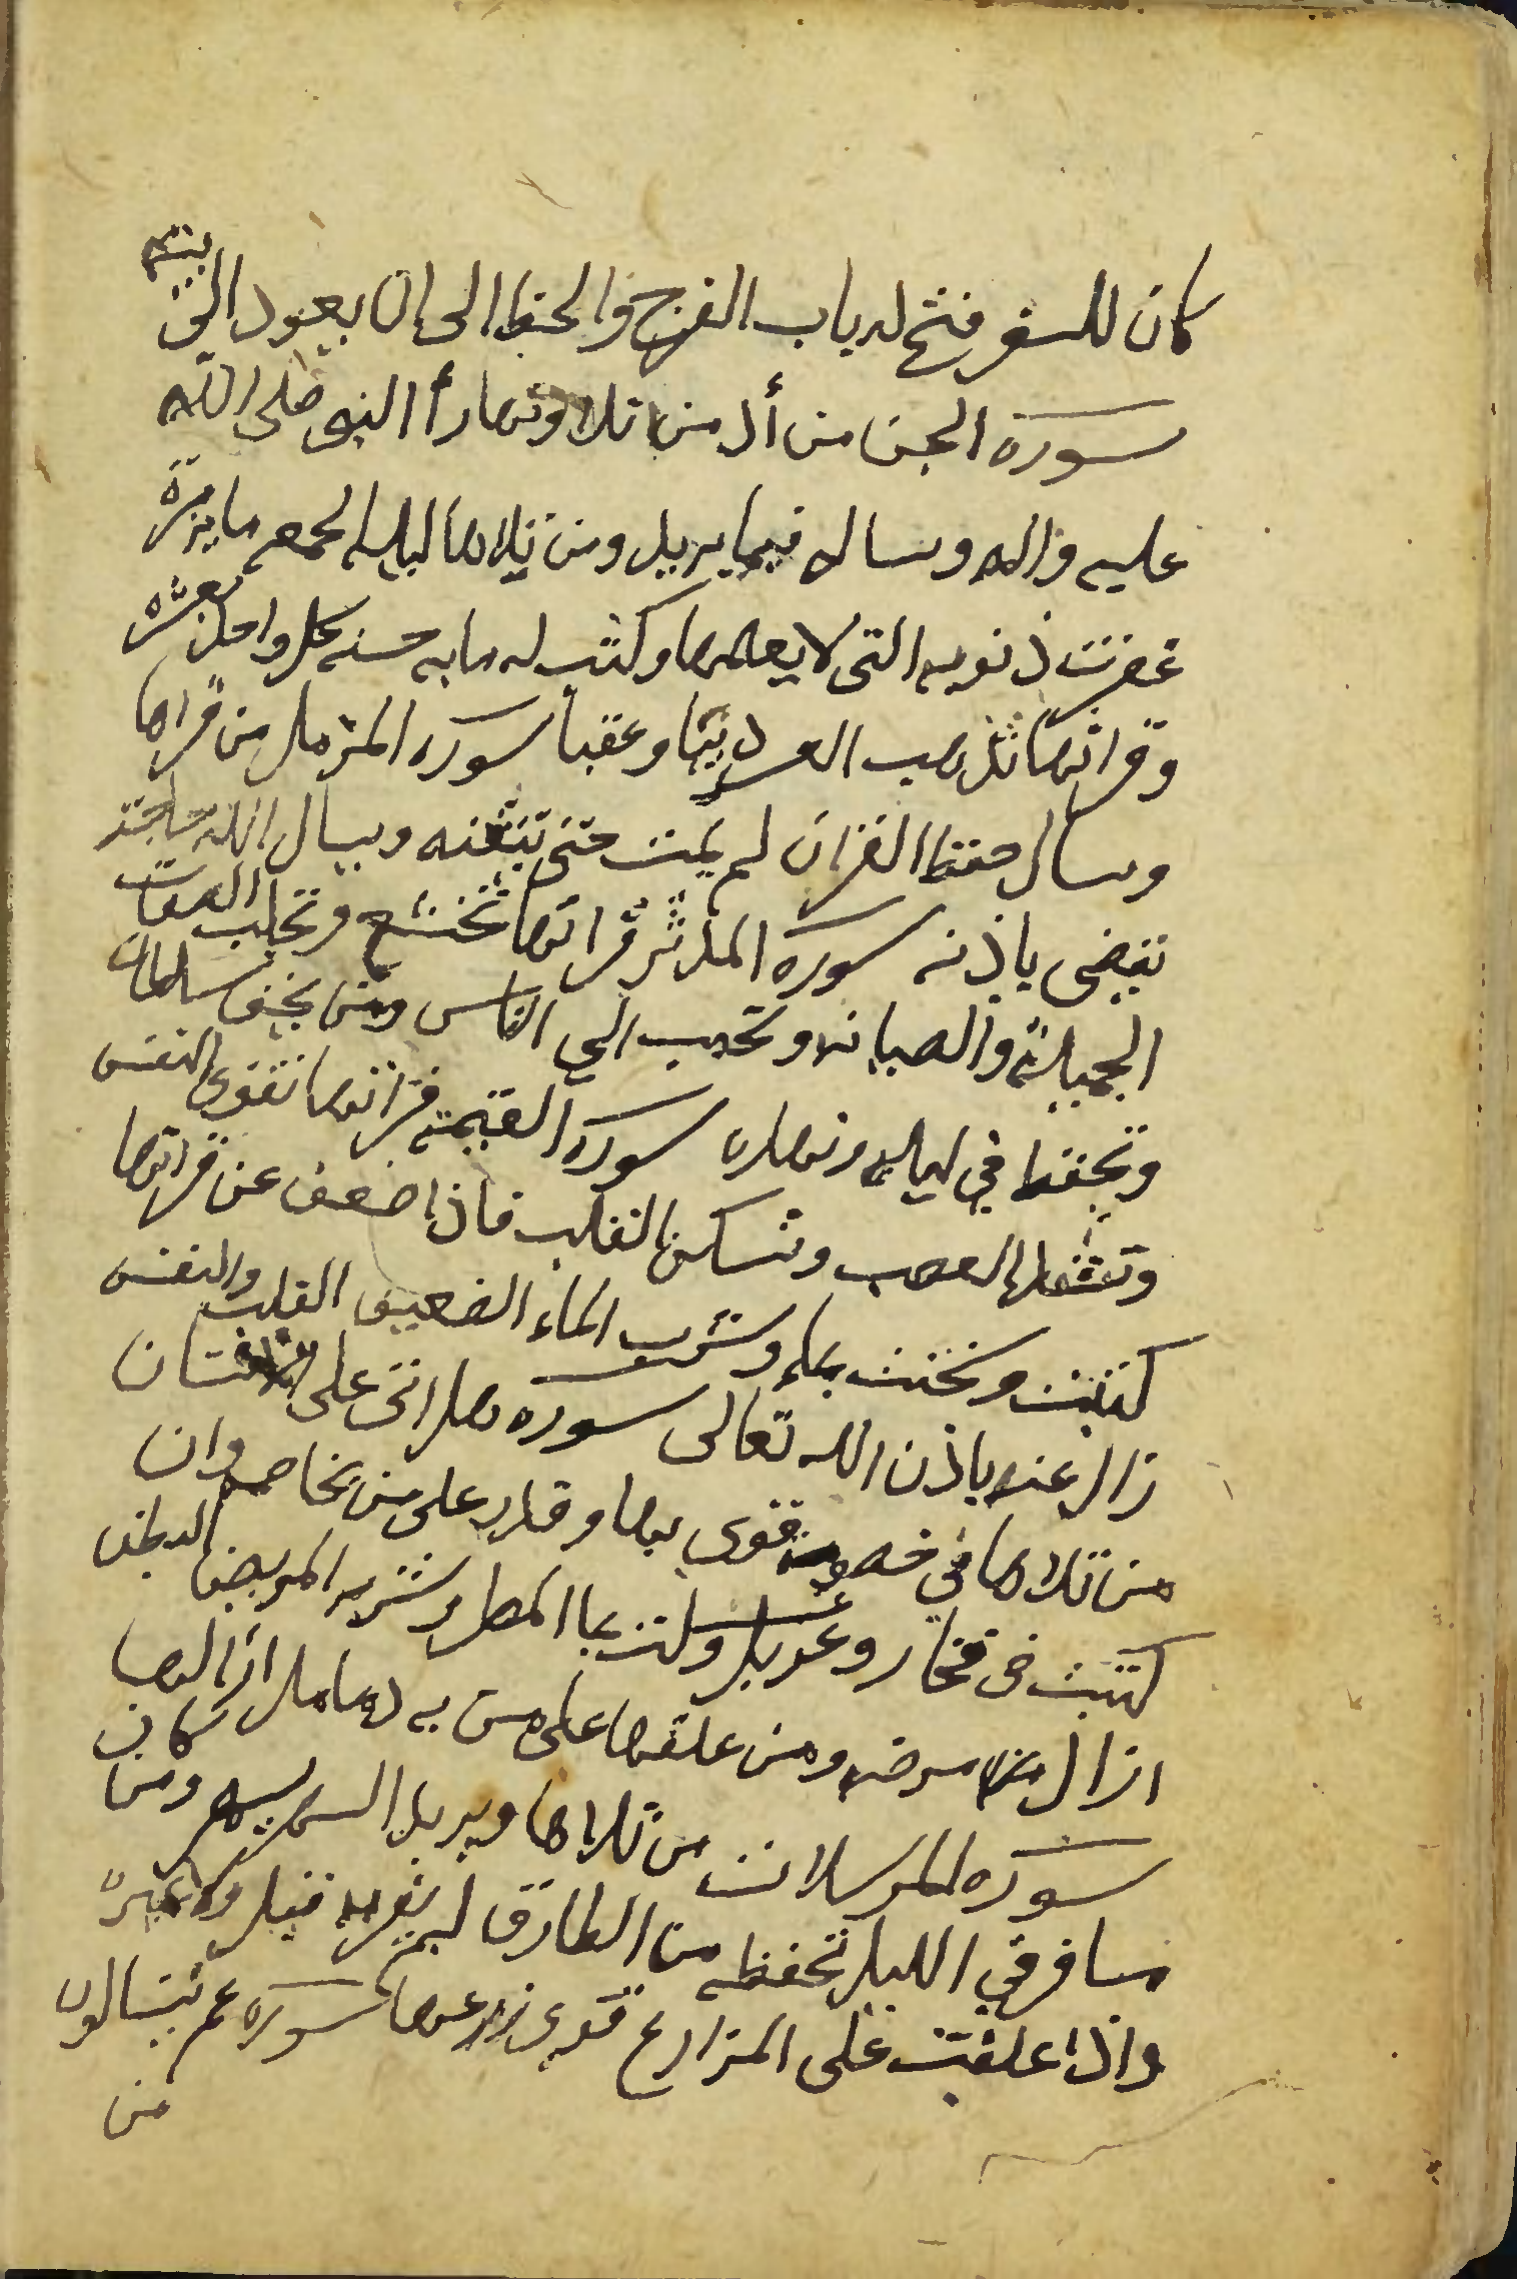 كان للسفر فتح له باب الفرج والحفظ الى ان يعود الى بيته
سورة الجن من أدمن تلاوتها رأ النبي صلى الله
عليه واله وساله فيما يريد ومن تلاها ليلة الجمعه مايه مرة
غفرت ذنوبه التى لا يعلمها وكتب له مايه حسنه كل واحد بعشره
وقرائتها تذهب العسر دنيا وعقبا سورة المزمل من قراها
وسال حفظ القران لم يمت حتى يتقنه ويسال الله حاجته
تقضى باذنه سورة المدثر قرائتها تخشع وتجلب الصفات
الجميلة والصيانه وتحبب الى الناس ومن يخف سلطان
وتحفظ في ليله ونهاره سورة القيمه قرائتها تقوى النفس
وتنشط العصب وتسكن القلب فاذا ضعف عن قرائتها
كتبت ومحيت بماء وشرب الماء الضعيف القلب والنفس
زال عنه باذن الله تعالى سوره هل اتى على الانسان
من تلاها في قوى بها وقدر على من يخاصم وان
كتبت فى فخار وغسلت بما المطر وشربه المريض البطن
ازال مرضه ومن علقها على من به دمامل ازالها
سورة المرسلات من تلاها ويريد السر ومن
مسافر في الليل تحفظه من الطارق لم يقربه
واذا علقت على المزارع قوى زرعها سورة عم يتسالون
من